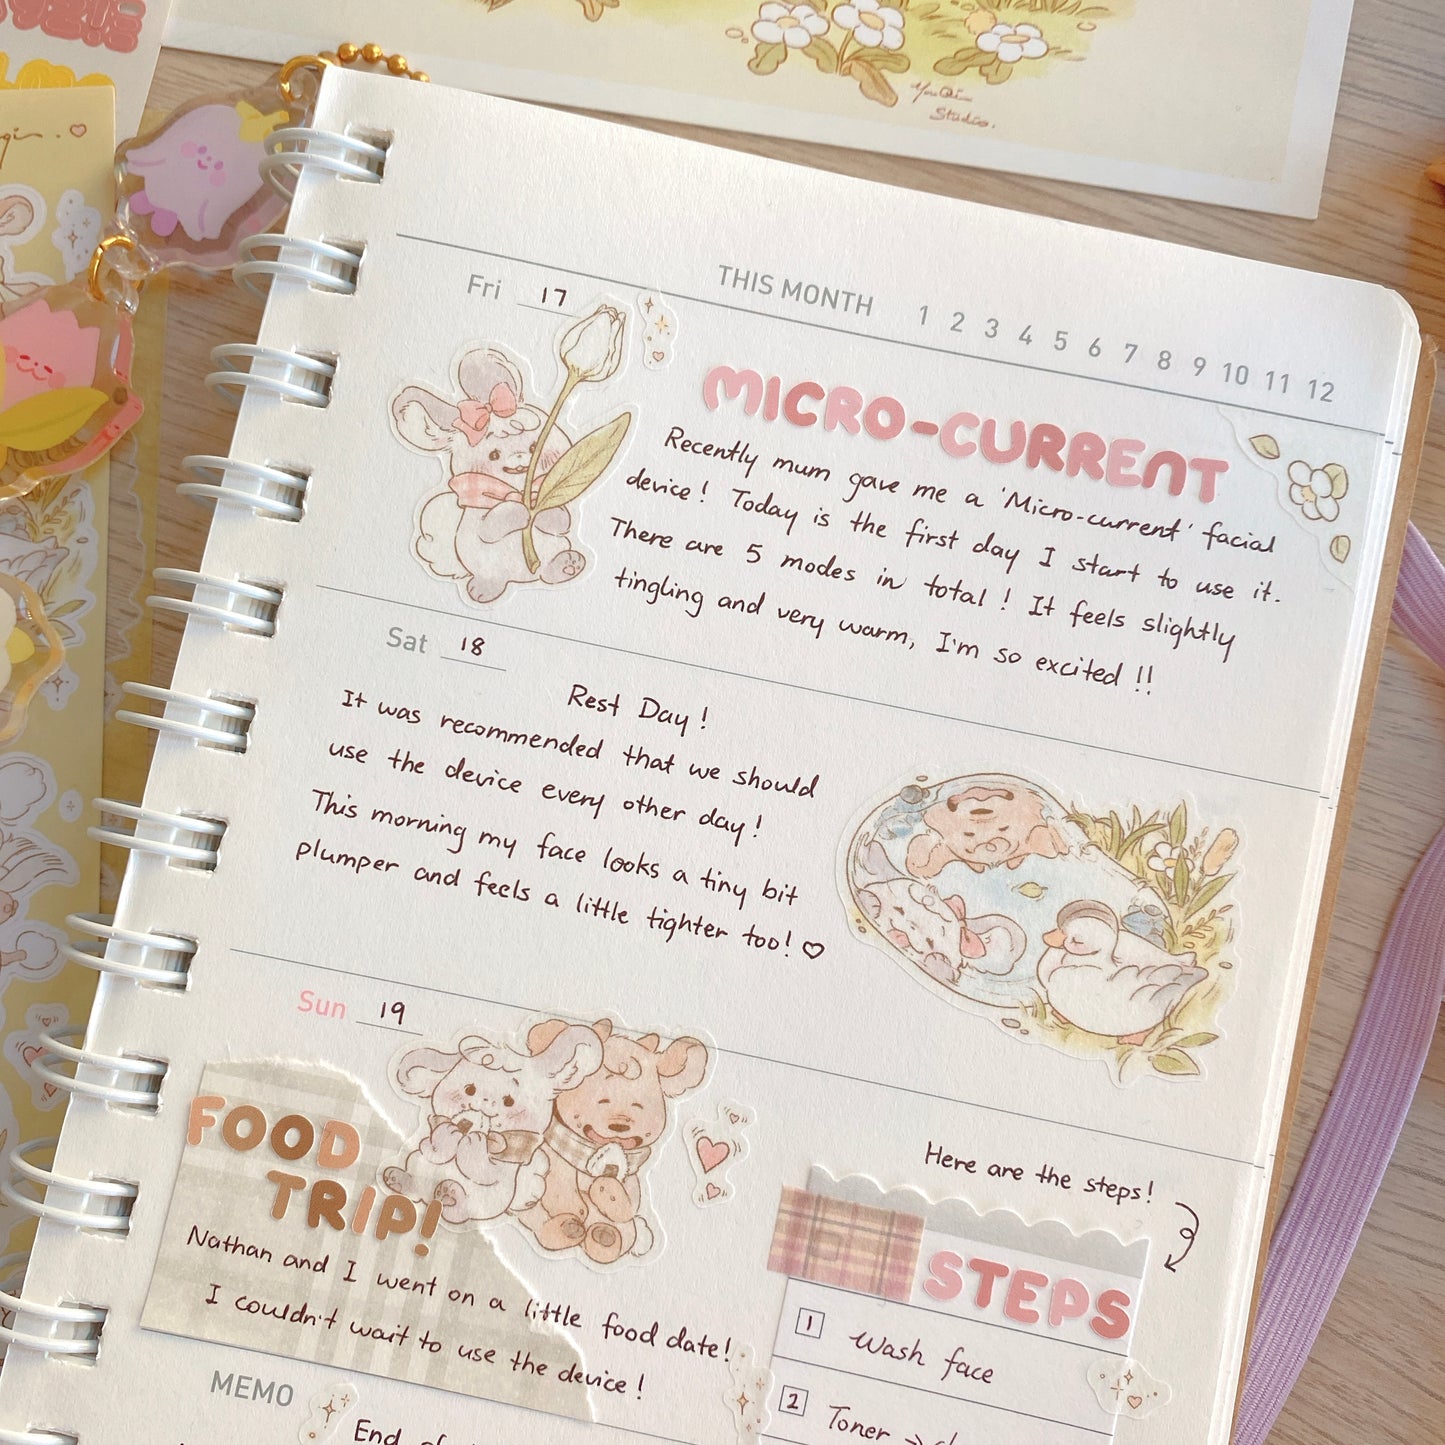 YouQin
Studio.
THIS MONTH 1 2 3 4 5 6 7 8 9 10 11 12
Fri 17
MICRO-CURRENT
Recently mum gave me a 'Micro-current' facial
device! Today is the first day I start to use it.
There are 5 modes in total! It feels slightly
tingling and very warm, I'm so excited!!
Sat 18
Rest Day!
It was recommended that we should
use the device every other day!
This morning my face looks a tiny bit
plumper and feels a little tighter too!
Sun 19
FOOD
TRIP!
Nathan and I went on a little food date!
I couldn't wait to use the device!
Here are the steps!
STEPS
1 Wash face
2 Toner
MEMO
End of